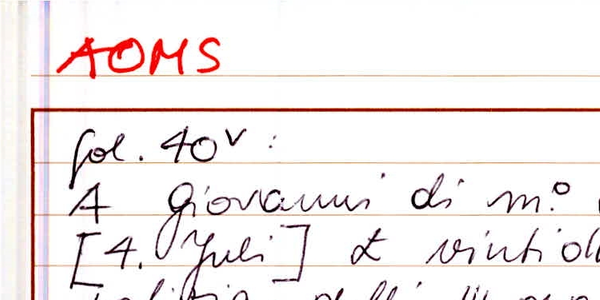 AOMS
fol. 40v :
A giovanni di m.o
[4. Juli] £ vinti